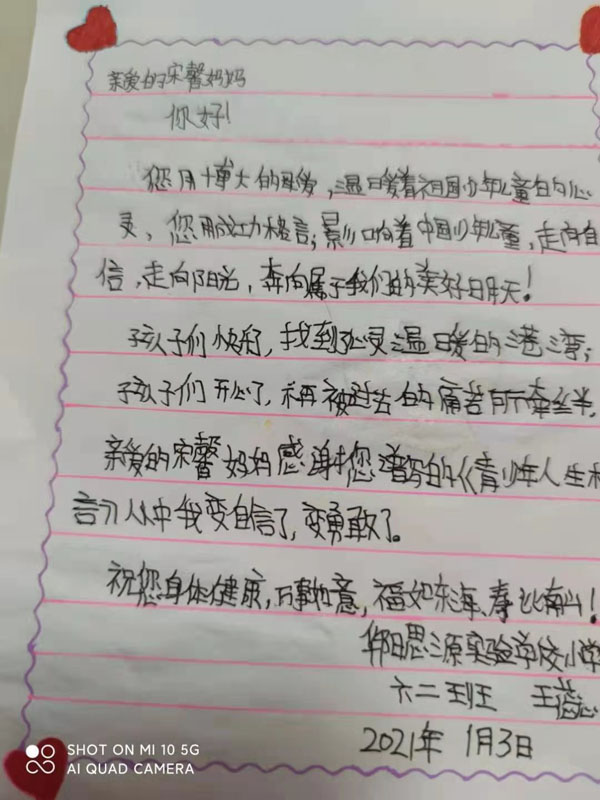 亲爱的宋馨妈妈
你好!
您用博大的母爱,温暖着祖国少年儿童的心
灵、您用成功格言,影响着中国少年儿童,走向自
信,走向阳光,奔向属于我们的美好明天!
孩子们快乐,找到心灵温暖的港湾;
孩子们开心了,不再被过去的痛苦所牵绊,
亲爱的宋馨妈妈感谢您谱写的《青少年人生格
言》从中我变自信了,变勇敢了。
祝您身体健康,万事如意,福如东海、寿比南山!
思源实验学校小学
六二班 王蕊
2021年 1月3日
SHOT ON MI 10 5G
AI QUAD CAMERA